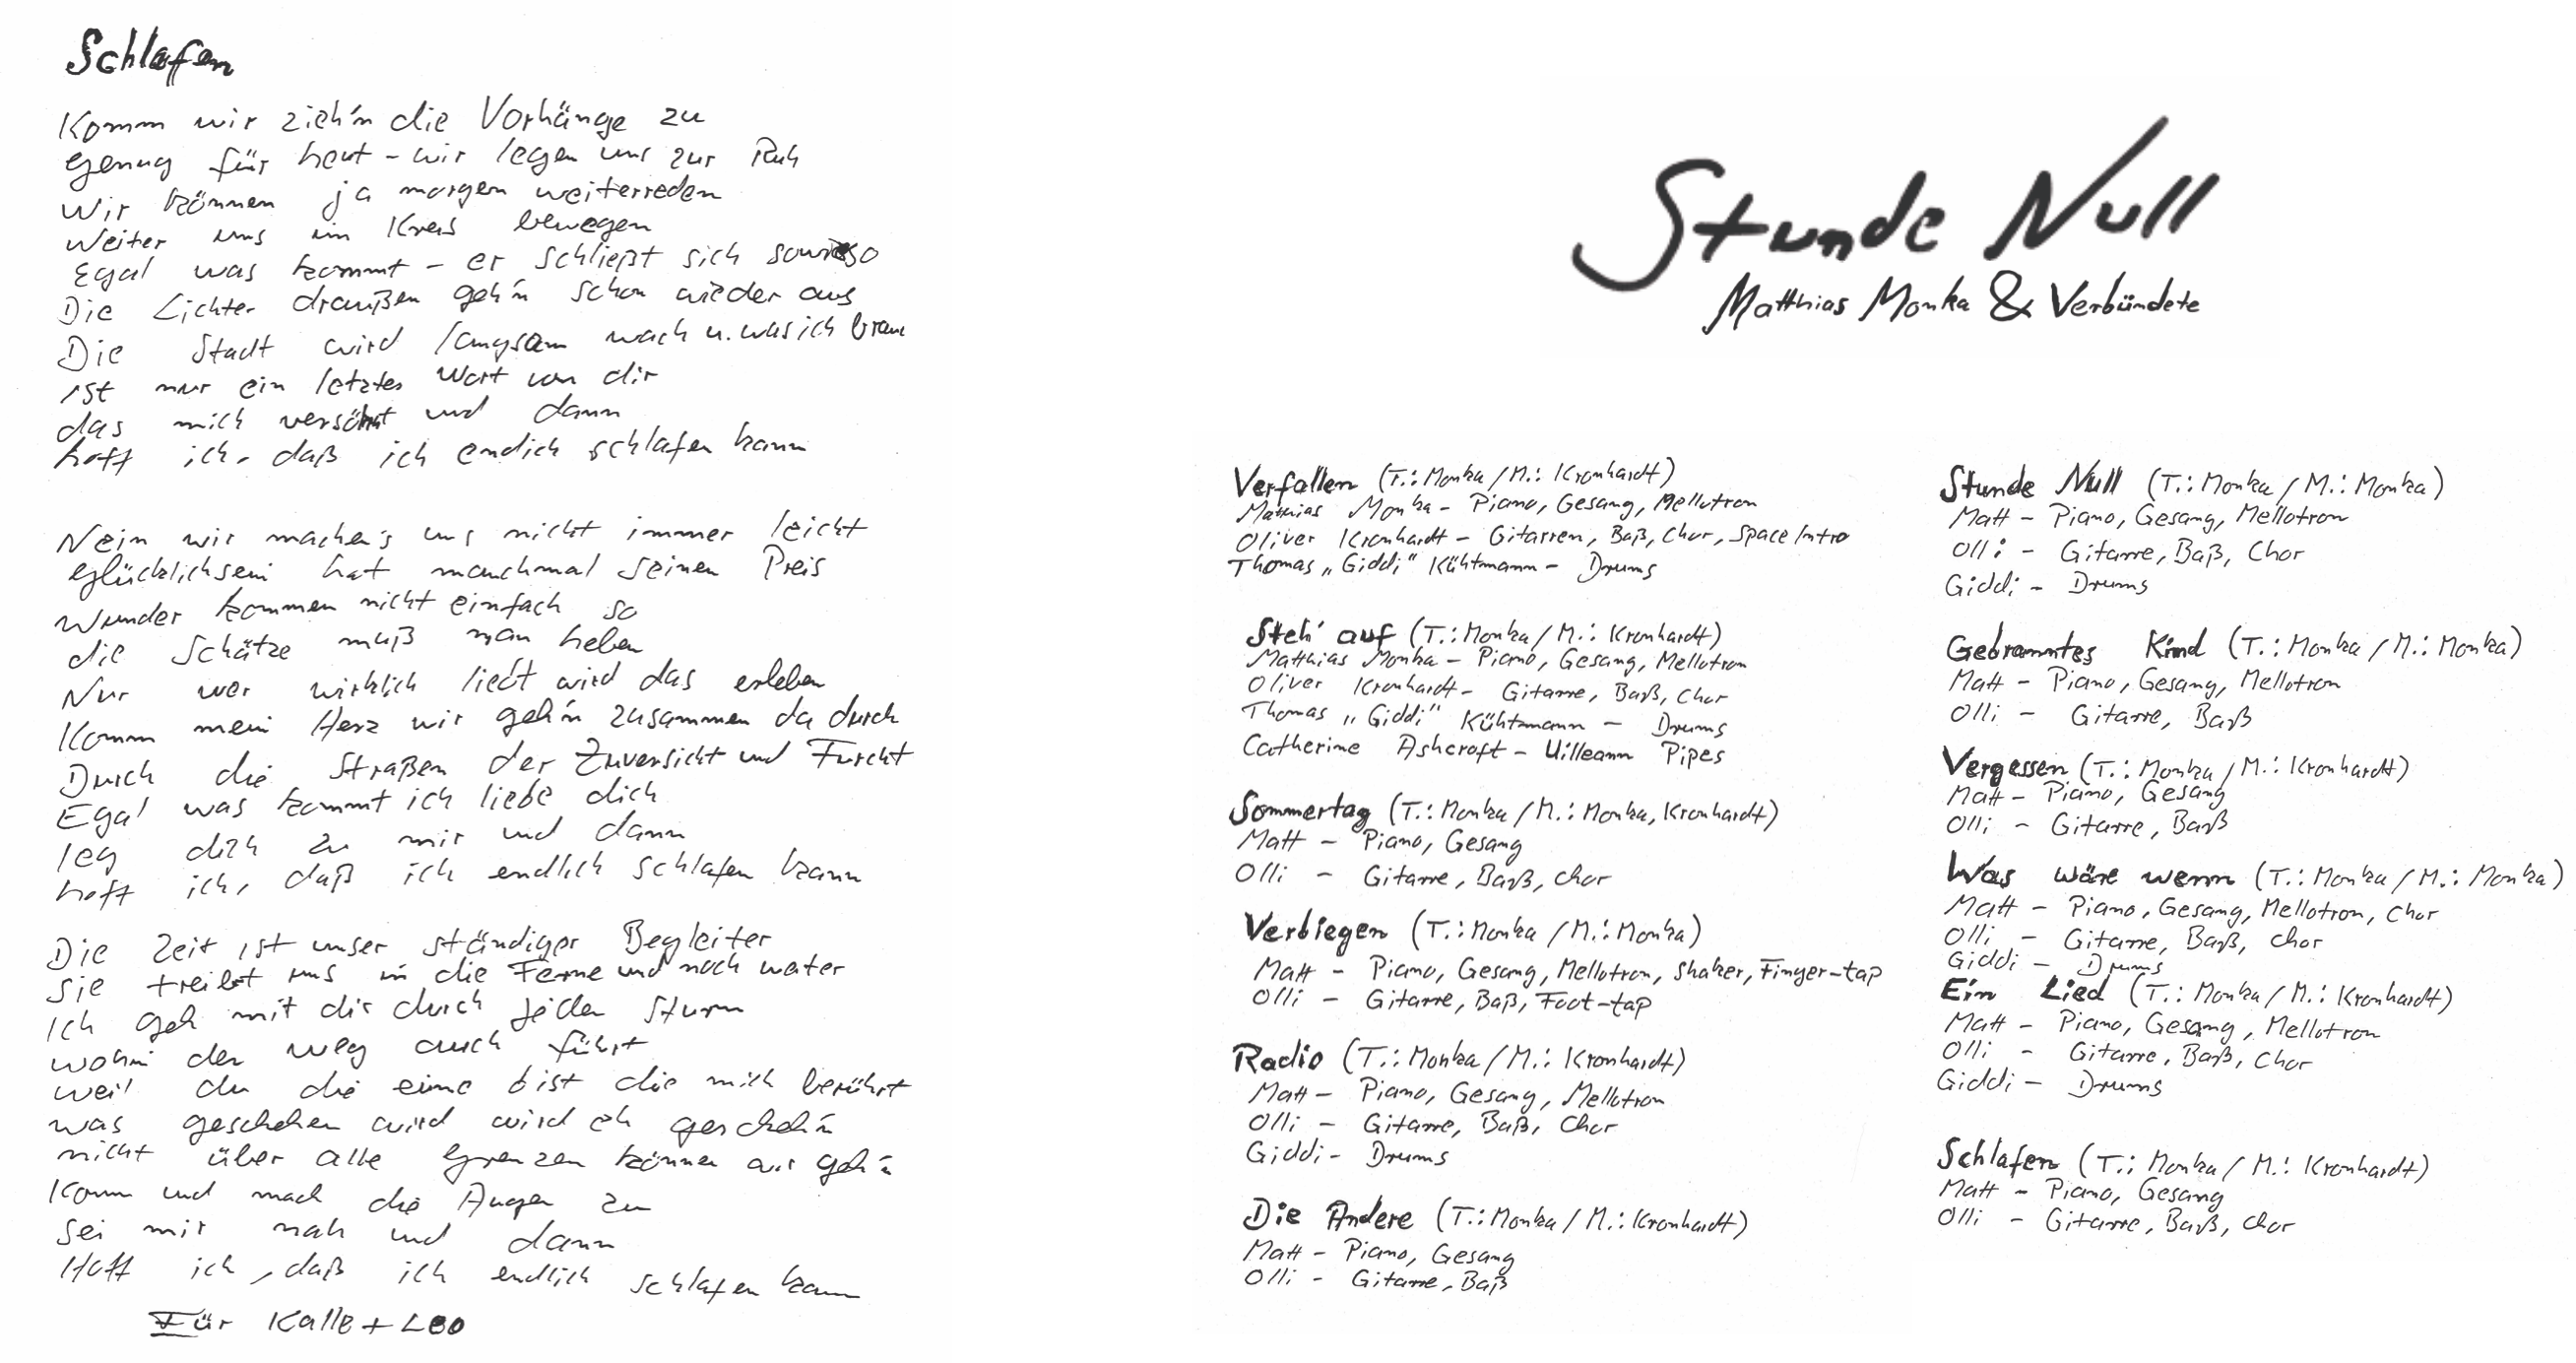 Schlafen
Komm wir zieh'n die Vorhänge zu
genug für heut - wir legen uns zur Ruh
wir können ja morgen weiterreden
weiter uns im Kreis bewegen
Egal was kommt - er schließt sich sowieso
Die Lichter draußen geh'n schon wieder aus
Die Stadt wird langsam wach u. was ich brauc
ist nur ein letztes Wort von dir
das mich versöhnt und dann
hoff ich, daß ich endlich schlafen kann
Nein wir machen's uns nicht immer leicht
glücklichsein hat manchmal seinen Preis
Wunder kommen nicht einfach so
die Schätze muß man heben
Nur wer wirklich liebt wird das erleben
Komm mein Herz wir geh'n zusammen da durch
Durch die Straßen der Zuversicht und Furcht
Egal was kommt ich liebe dich
leg dich zu mir und dann
hoff ich, daß ich endlich schlafen kann
Die Zeit ist unser ständiger Begleiter
sie treibt uns in die Ferne und noch weiter
Ich geh mit dir durch jeden Sturm
wohin der Weg auch führt
weil du die eine bist die mich berührt
was geschehen wird wird eh gescheh'n
nicht über alle Grenzen können wir geh'n
Komm und mach die Augen zu
sei mir nah und dann
Hoff ich, daß ich endlich schlafen kann
Für Kalle + Leo
Stunde Null
Matthias Monka & Verbündete
Verfallen (T.: Monka / M.: Kronhardt)
Matthias Monka - Piano, Gesang, Mellotron
Oliver Kronhardt - Gitarren, Baß, Chor, Space Intro
Thomas „Giddi" Kühtmann - Drums
Steh' auf (T.: Monka / M.: Kronhardt)
Matthias Monka - Piano, Gesang, Mellotron
Oliver Kronhardt - Gitarre, Baß, Chor
Thomas „Giddi" Kühtmann - Drums
Catherine Ashcroft - Uilleann Pipes
Sommertag (T.: Monka / M.: Monka, Kronhardt)
Matt - Piano, Gesang
Olli - Gitarre, Baß, Chor
Verbiegen (T.: Monka / M.: Monka)
Matt - Piano, Gesang, Mellotron, Shaker, Finger-tap
Olli - Gitarre, Baß, Foot-tap
Radio (T.: Monka / M.: Kronhardt)
Matt - Piano, Gesang, Mellotron
Olli - Gitarre, Baß, Chor
Giddi - Drums
Die Andere (T.: Monka / M.: Kronhardt)
Matt - Piano, Gesang
Olli - Gitarre, Baß
Stunde Null (T.: Monka / M.: Monka)
Matt - Piano, Gesang, Mellotron
Olli - Gitarre, Baß, Chor
Giddi - Drums
Gebranntes Kind (T.: Monka / M.: Monka)
Matt - Piano, Gesang, Mellotron
Olli - Gitarre, Baß
Vergessen (T.: Monka / M.: Kronhardt)
Matt - Piano, Gesang
Olli - Gitarre, Baß
Was wäre wenn (T.: Monka / M.: Monka)
Matt - Piano, Gesang, Mellotron, Chor
Olli - Gitarre, Baß, Chor
Giddi - Drums
Ein Lied (T.: Monka / M.: Kronhardt)
Matt - Piano, Gesang, Mellotron
Olli - Gitarre, Baß, Chor
Giddi - Drums
Schlafen (T.: Monka / M.: Kronhardt)
Matt - Piano, Gesang
Olli - Gitarre, Baß, Chor